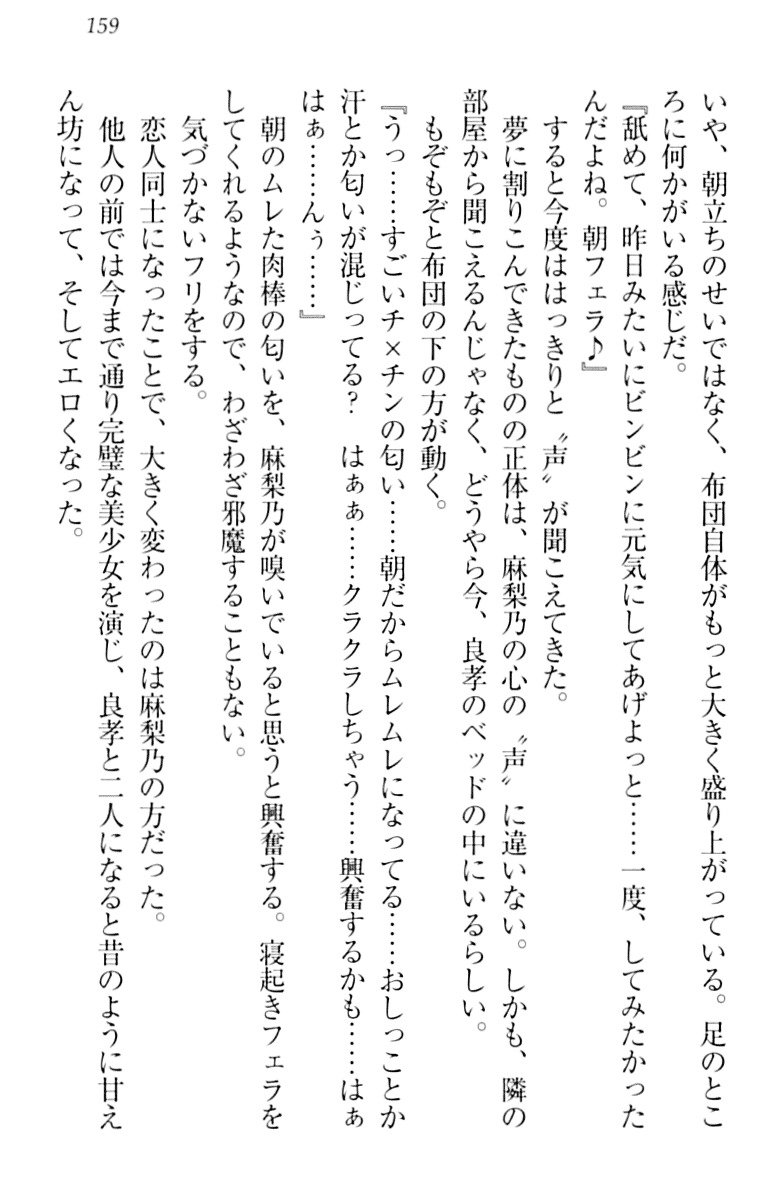 159
いや、朝立ちのせいではなく、布団自体がもっと大きく盛り上がっている。足のとこ
ろに何かがいる感じだ。
『舐めて、昨日みたいにビンビンに元気にしてあげよっと……一度、してみたかった
んだよね。朝フェラ♪』
すると今度ははっきりと〝声〟が聞こえてきた。
夢に割りこんできたものの正体は、麻梨乃の心の〝声〟に違いない。しかも、隣の
部屋から聞こえるんじゃなく、どうやら今、良孝のベッドの中にいるらしい。
もぞもぞと布団の下の方が動く。
『うっ……すごいチ×チンの匂い……朝だからムレムレになってる……おしっことか
汗とか匂いが混じってる？　はぁぁ……クラクラしちゃう……興奮するかも……はぁ
はぁ……んぅ……』
朝のムレた肉棒の匂いを、麻梨乃が嗅いでいると思うと興奮する。寝起きフェラを
してくれるようなので、わざわざ邪魔することもない。
気づかないフリをする。
恋人同士になったことで、大きく変わったのは麻梨乃の方だった。
他人の前では今まで通り完璧な美少女を演じ、良孝と二人になると昔のように甘え
ん坊になって、そしてエロくなった。